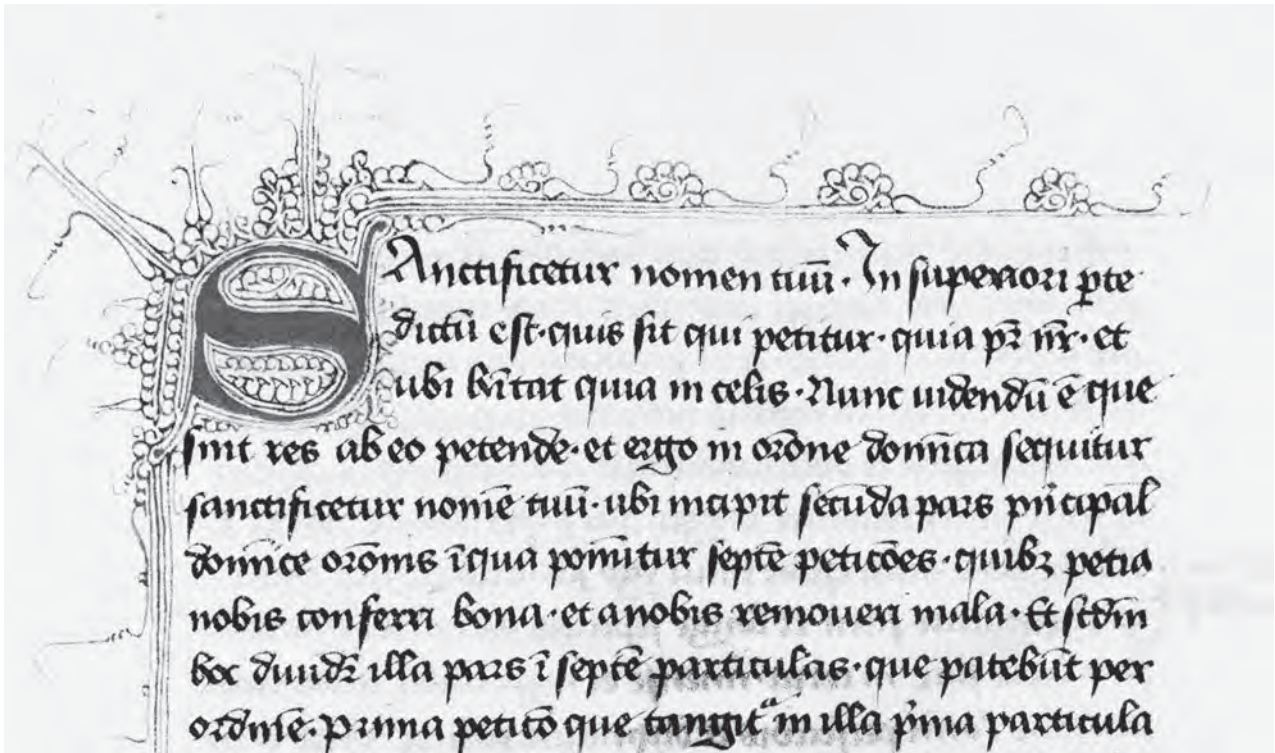 SAnctificetur nomen tuū · In superiori ꝑte
dictū est · quis sit qui petitur · quia pr̄ nr̄ · et
ubi hītat quia in celis · Nunc uidendū ē que
sint res ab eo petende · et ergo in orōne domīca sequitur
sanctificetur nomē tuū · ubi incipit secūda pars pͥncipal̄
domīce orōnis ī qua ponūtur septē peticōes · quibꝫ petim
nobis conferri bona · et a nobis remoueri mala · Et scdm̄
hoc diuidr̄ illa pars ī septē particulas · que patebūt per
ordinē · Prima peticō que tangitᵃ in illa pͥma particula